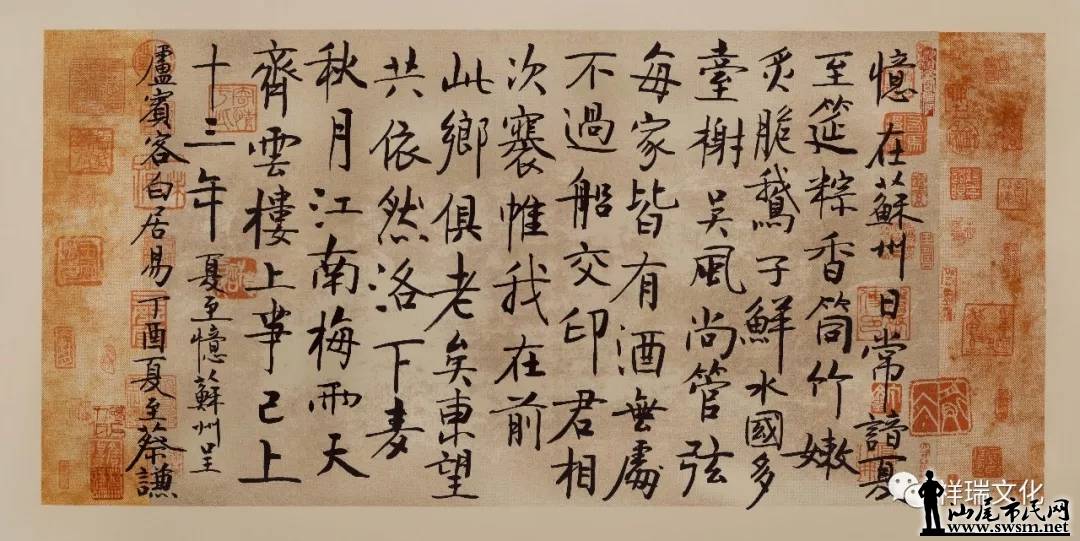 憶在蘇州日常諳夏
至筵粽香筒竹嫩
炙脆鵝子鮮水國多
臺榭吳風尚管弦
每家皆有酒無處
不過船交印君相
次褰帷我在前
此鄉俱老矣東望
共依然洛下麦
秋月江南梅雨天
齊雲樓上事已上
十三年
夏至憶蘇州呈
盧賓客白居易丁酉夏至蔡謙
祥瑞文化
汕尾市民网
www.swsm.net